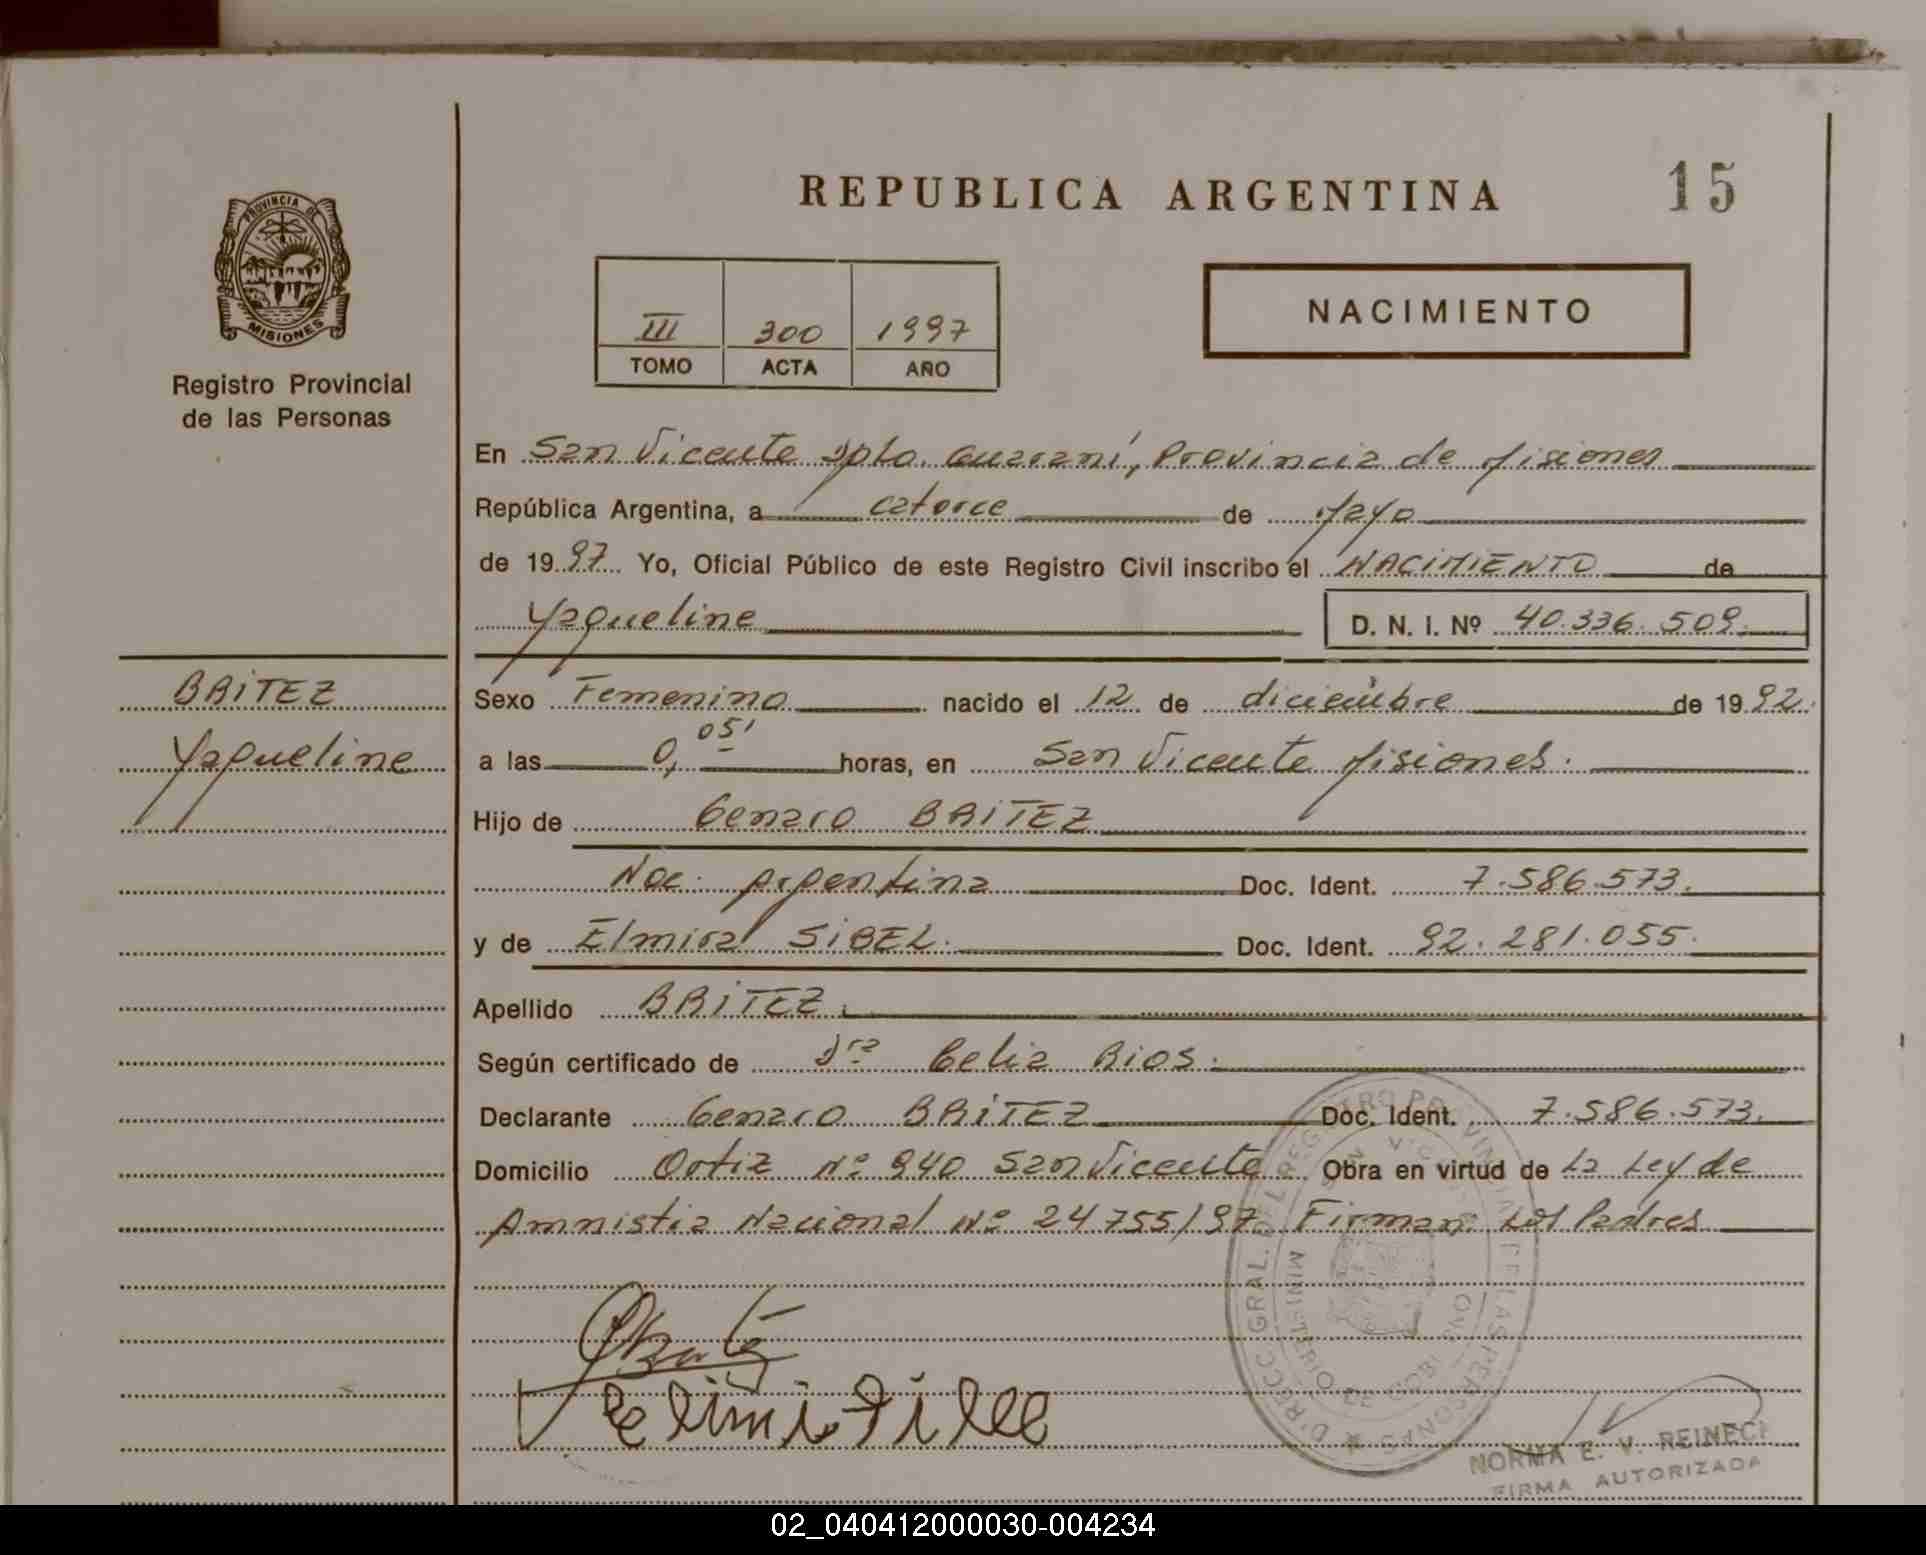 REPUBLICA ARGENTINA
15
PROVINCIA DE
MISIONES
Registro Provincial
de las Personas
III 300 1997
TOMO ACTA AÑO
NACIMIENTO
En San Vicente Dpto. Guaraní, Provincia de Misiones
República Argentina, a catorce de Mayo
de 1997 Yo, Oficial Público de este Registro Civil inscribo el NACIMIENTO de
Yaqueline D. N. I. Nº 40.336.509.
BRITEZ
Yaqueline
Sexo Femenino nacido el 12 de diciembre de 1992.
a las 0,05' horas, en San Vicente Misiones.
Hijo de Genaro BRITEZ
Nac. Argentina Doc. Ident. 7.586.573.
y de Elmira SIBEL. Doc. Ident. 92.281.055.
Apellido BRITEZ.
Según certificado de Dra Celia RIOS.
Declarante Genaro BRITEZ Doc. Ident. 7.586.573.
Domicilio Ortiz Nº 940 San Vicente Obra en virtud de La Ley de
Amnistia Nacional Nº 24755/97 Firman: Los Padres
NORMA E. V. REINECK
FIRMA AUTORIZADA
02_040412000030-004234